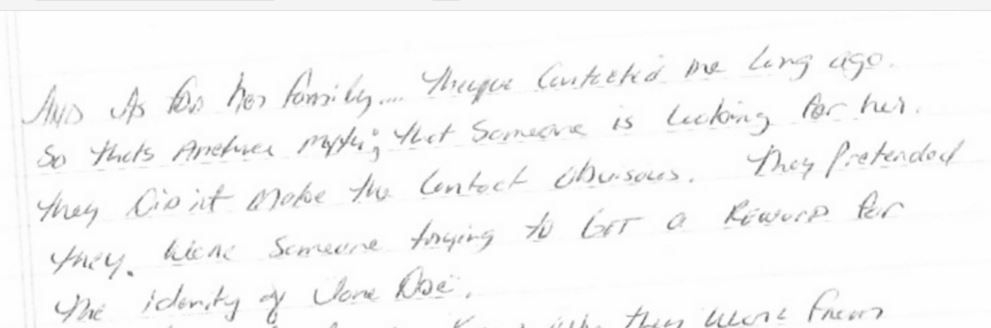 AND As for her family.... They've Contacted me Long ago.
So thats Another myth; that Someone is Looking for her.
they Didn't Make the Contact obvisous. They Pretended
they. Were Someone trying to GET a REWARD for
the idenity of Jane Doe.
they Were From